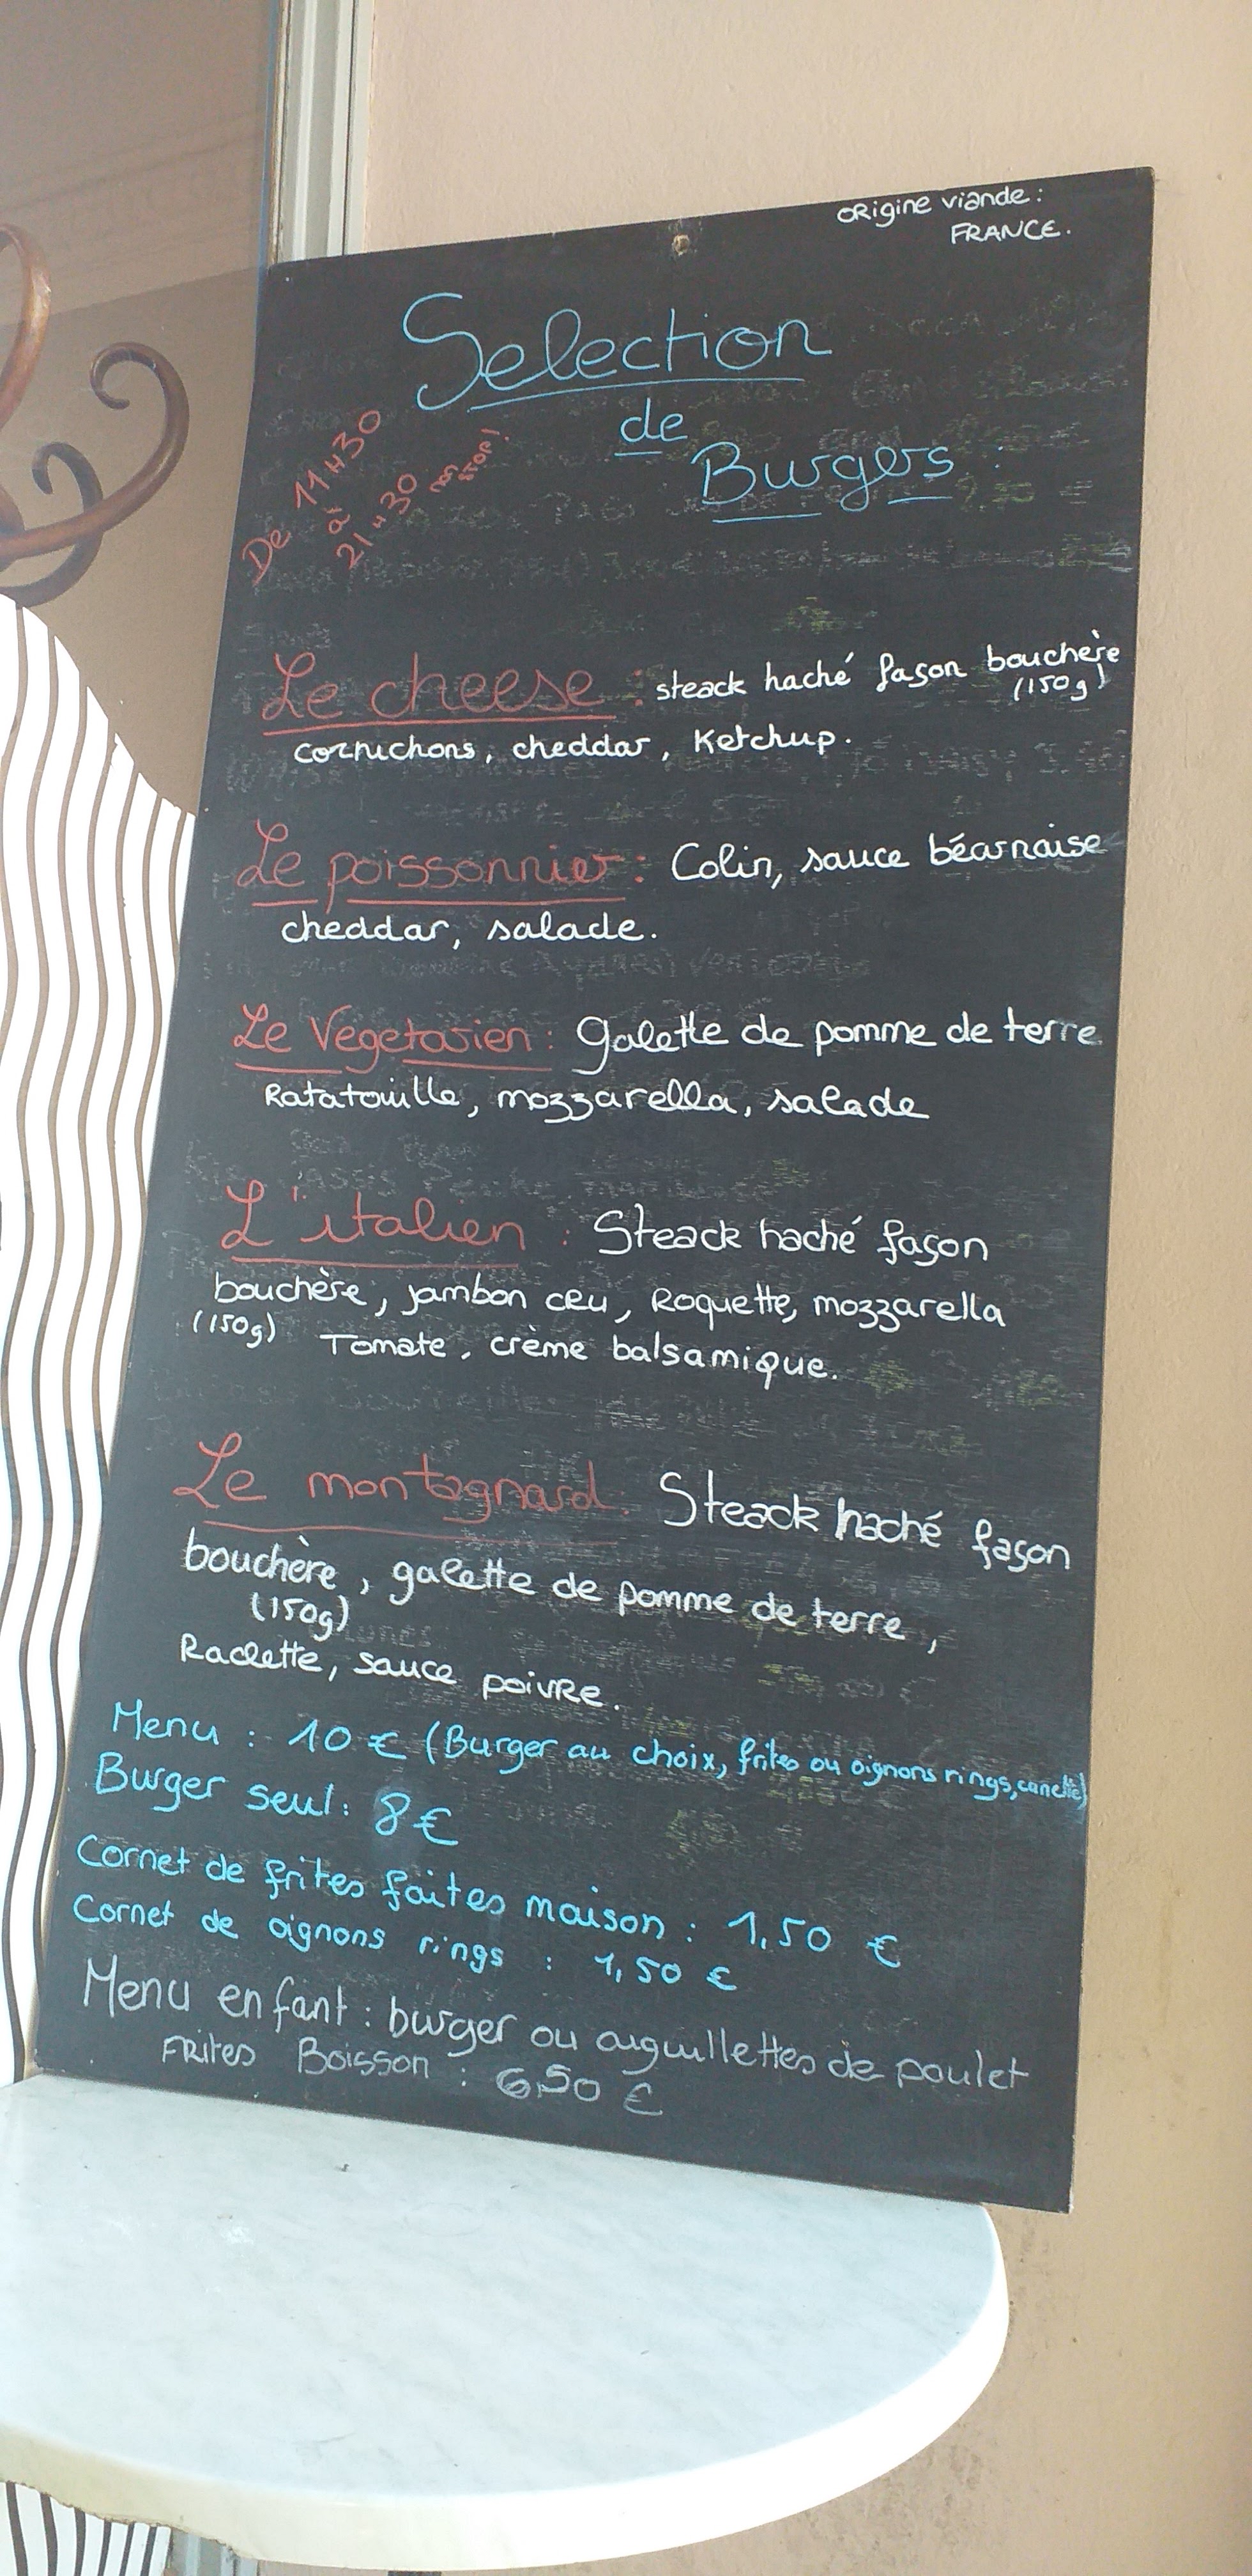 ORigine viande :
FRANCE.
Selection
de
Burgers :
De 11H30
à
21H30 non
STOP!
Le cheese : steack haché façon bouchère
(150g)
cornichons, cheddar, Ketchup.
Le poissonnier : Colin, sauce béarnaise
cheddar, salade.
Le Vegetarien : Galette de pomme de terre
Ratatouille, mozzarella, salade
L'italien : Steack haché façon
bouchère, jambon cru, Roquette, mozzarella
(150g) Tomate, crème balsamique.
Le montagnard : Steack haché façon
bouchère, galette de pomme de terre,
(150g)
Raclette, sauce poivre.
Menu : 10 € (Burger au choix, frites ou oignons rings, canette)
Burger seul : 8 €
Cornet de frites faites maison : 1,50 €
Cornet de oignons rings : 1,50 €
Menu enfant : burger ou aiguillettes de poulet
FRites Boisson : 6,50 €